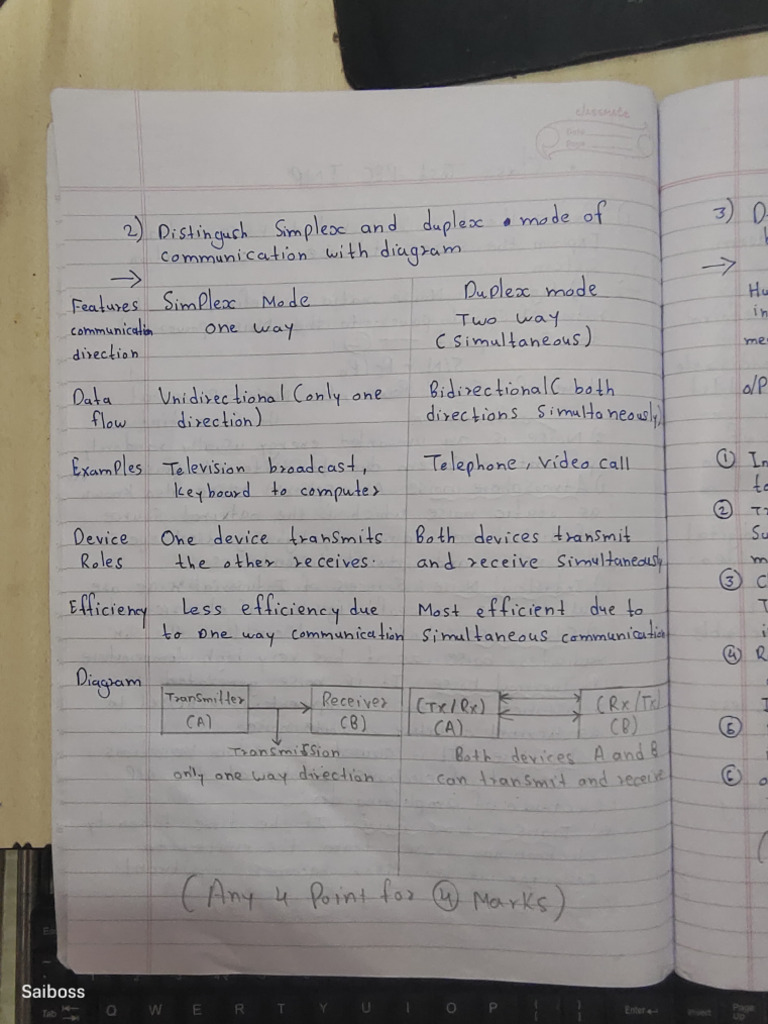 classmate
Date
Page
2) Distingush Simplex and duplex mode of
communication with diagram
→
Features Simplex Mode Duplex mode
communication one way Two way
direction (simultaneous)
Data Unidirectional (only one Bidirectional( both
flow direction) directions Simultaneously)
Examples Television broadcast, Telephone, video call
keyboard to computer
Device One device transmits Both devices transmit
Roles the other receives. and receive simultaneously
Efficiency Less efficiency due Most efficient due to
to one way communication simultaneous communication
Diagram
Transmitter Receiver (Tx/Rx) (Rx/Tx)
(A) (B) (A) (B)
Transmission Both devices A and B
only one way direction can transmit and receive
(Any 4 Point for ④ Marks)
3) D
→
Hu
in
me
o/P
① In
to
② Tr
Su
m
③ C
T
i
④ R
I
⑤
⑥ o
(
Saiboss
Tab Q W E R T Y U I O P { } Enter Insert Page
Up